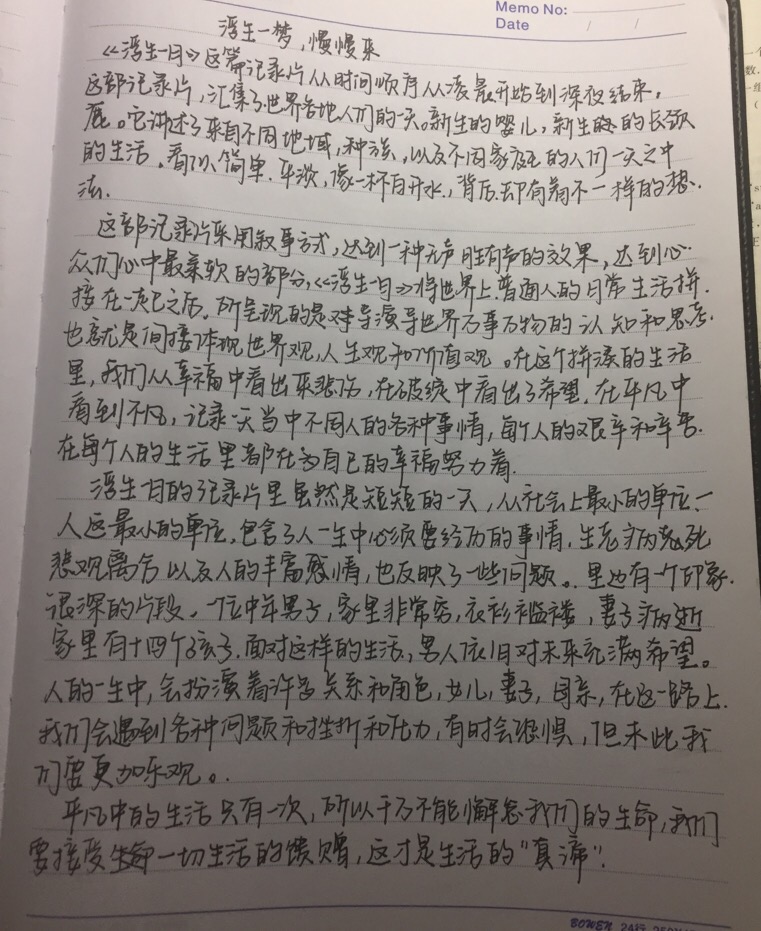 Memo No:
Date / /
浮生一梦,慢慢来
《浮生一日》这篇记录片从时间顺序从凌晨开始到深夜结束,
这部记录片,汇集了世界各地人们的一天。新生的婴儿,新生的长颈
鹿。它讲述了来自不同地域,种族,以及不同家庭的人们一天之中
的生活,看似简单.平淡,像一杯白开水,背后却有着不一样的想.
法.
这部记录片采用叙事方式,达到一种无声胜有声的效果,达到心
众们心中最柔软的部分,《浮生一日》将世界上普通人的日常生活拼.
接在一起之后,所呈现的是对导演导世界万事万物的认知和思考.
也就是间接体现世界观,人生观和价值观。在这个拼凑的生活
里,我们从幸福中看出来悲伤,在破绽中看出了希望,在平凡中
看到不凡,记录一天当中不同人的各种事情,每个人的艰辛和辛苦.
在每个人的生活里都在为自己的幸福努力着.
浮生一日的记录片里虽然是短短的一天,从社会上最小的单位一
人这最小的单位,包含了人一生中必须要经历的事情,生老病死
悲欢离合以及人的丰富感情,也反映了一些问题。里边有一个印象.
很深的片段,一位中年男子,家里非常穷,衣衫褴褛,妻子病逝
家里有十四个孩子.面对这样的生活,男人依旧对未来充满希望。
人的一生中,会扮演着许多关系和角色,女儿,妻子,母亲,在这一路上.
我们会遇到各种问题和挫折和压力,有时会恐惧,但来此我
们要更加乐观。.
平凡中的生活只有一次,所以千万不能懈怠我们的生命,我们
要接受一切生活的馈赠,这才是生活的"真谛".
BOWEN